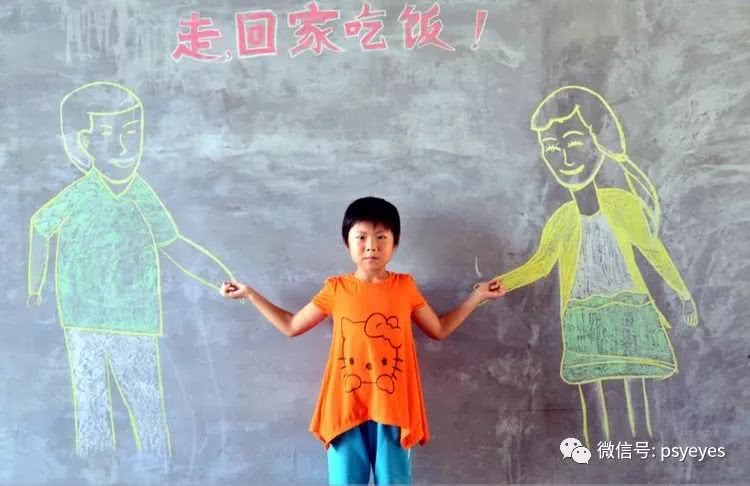 走,回家吃饭!
微信号: psyeyes